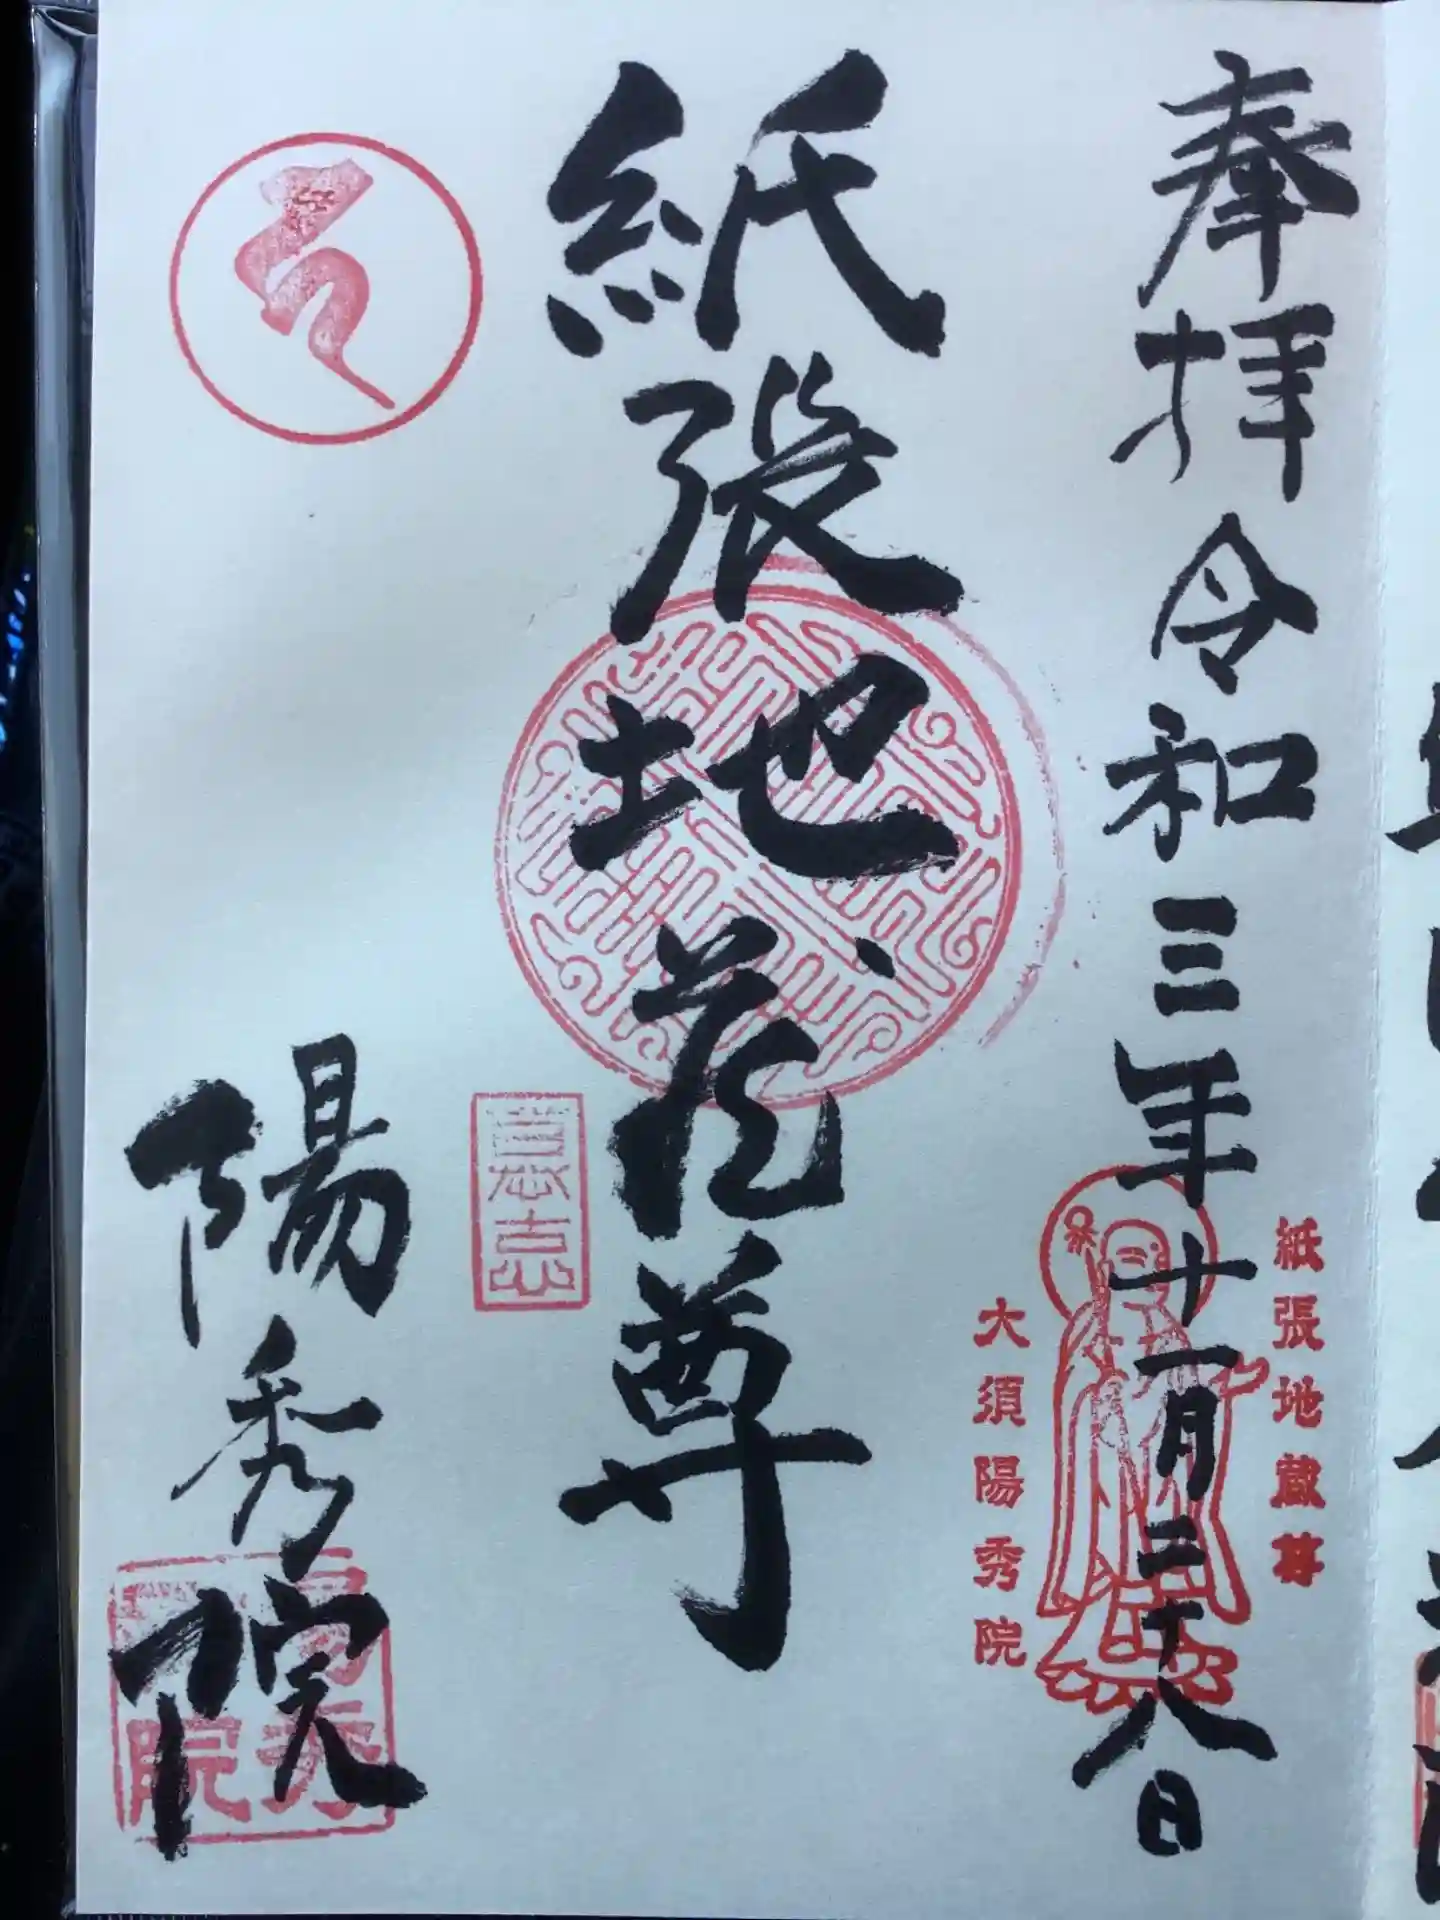 奉拝 令和三年十一月二十八日
紙張地蔵尊
大須陽秀院
紙張地蔵尊
陽秀院